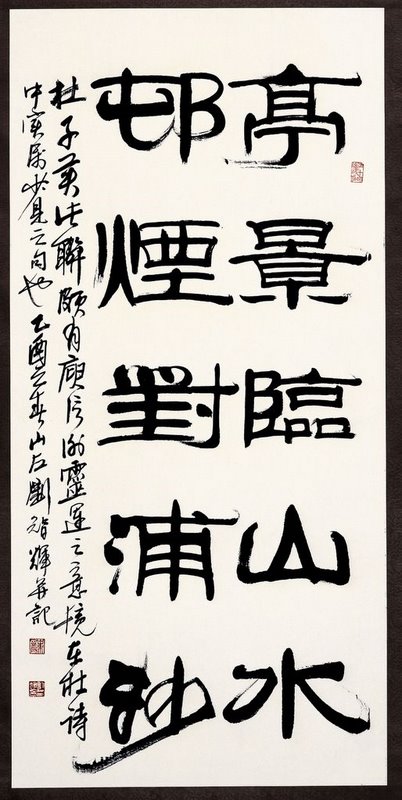 亭景臨山水
邨煙對浦沙
杜子美此聯頗有庾信謝靈運之意境在杜詩
中實屬少見之句也乙酉之春山左劉智輝并記